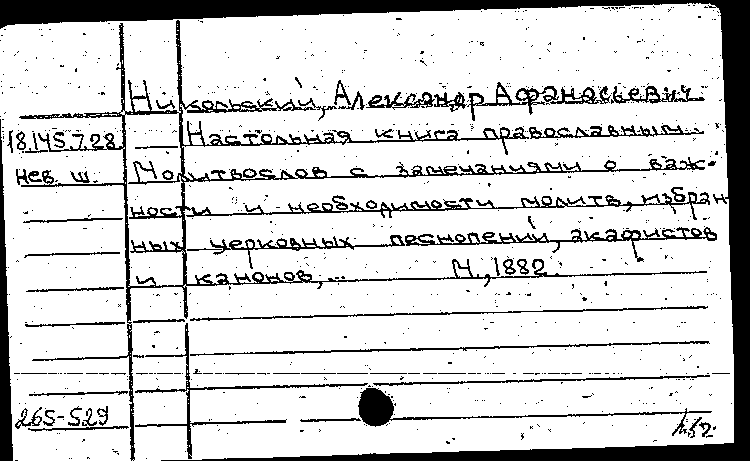 Никольский, Александр Афанасьевич.
18.145.7.28. Настольная книга православным...
Нев. ш. Молитвослов с замечаниями о важ-
ности и необходимости молитв, избран-
ных церковных песнопений, акафистов
и канонов,... М., 1882.
265-529